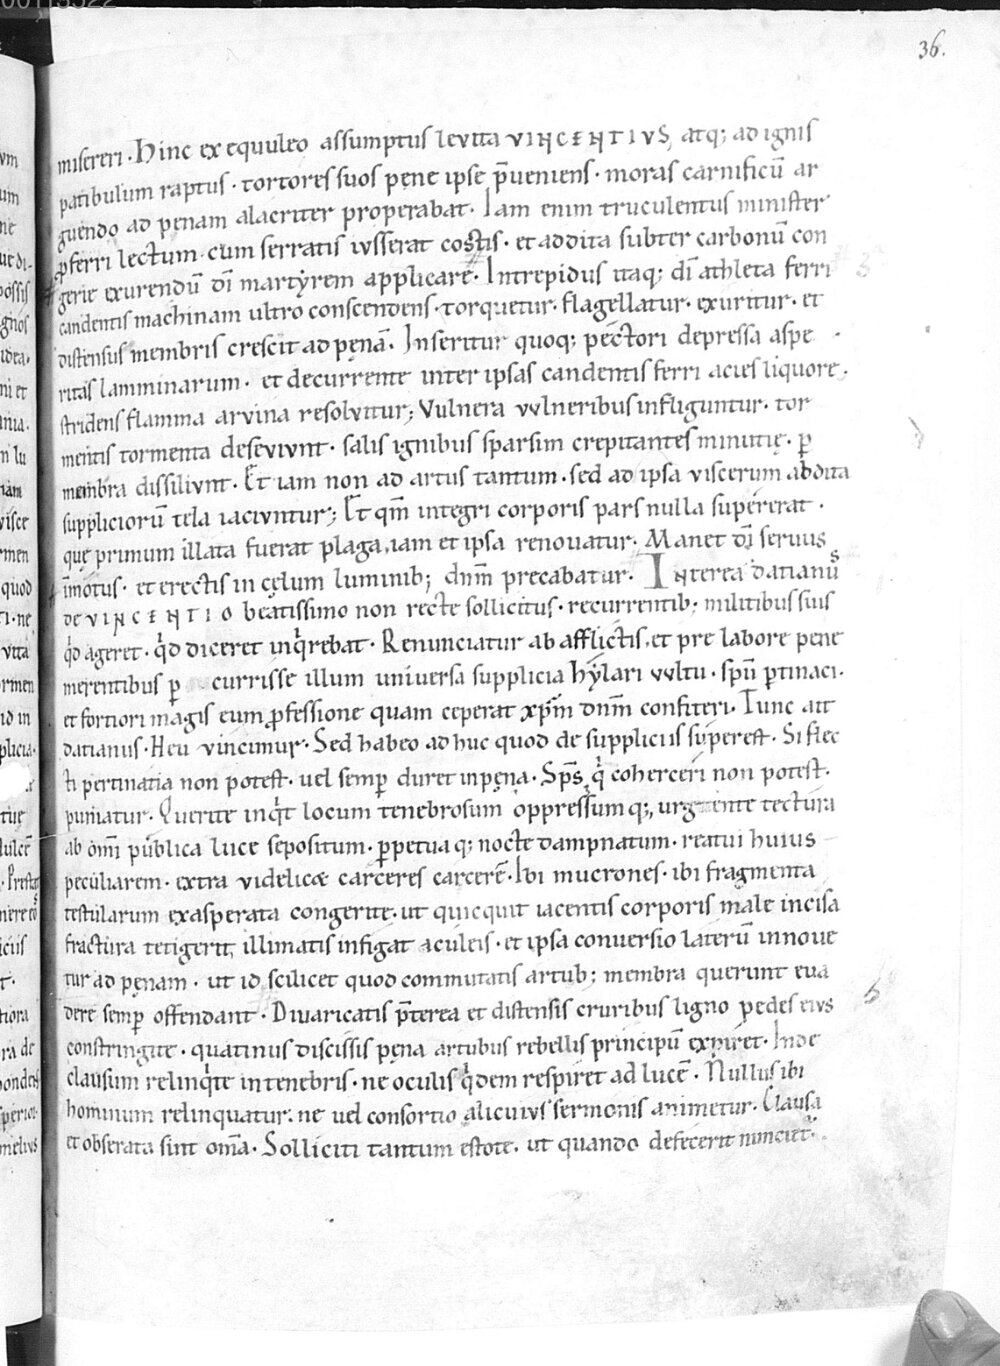 36.
misereri · Hinc ex equuleo assumptus levita VINCENTIVS, atq; ad ignis
patibulum raptus · tortores suos pene ipse p̄ueniens · moras carnificū ar
guendo ad penam alacriter properabat · Iam enim truculentus minister
ꝓferri lectum cum serratis iusserat costis · et addita subter carbonū con
gerie exurendū dī martyrem applicare · Intrepidus itaq; dī athleta ferri
candentis machinam ultro conscendens · torquetur · flagellatur · exuritur · et
distensus membris crescit ad pęnā · Inseritur quoq; pectori depressa aspe
ritas lamminarum · et decurrente inter ipsas candentis ferri acies liquore ·
stridens flamma arvina resolvitur; Vulnera vulneribus infliguntur · tor
mentis tormenta deseviunt · salis ignibus sparsim crepitantes minutię · ꝑ
membra dissiliunt · Et iam non ad artus tantum · sed ad ipsa viscerum abdita
suppliciorū tela iaciuntur; Et qm̄ integri corporis pars nulla supererat ·
quę primum illata fuerat plaga, iam et ipsa renouatur · Manet dī seruus
īmotus · et erectis in cęlum luminib; dnm̄ precabatur · Interea datianus
de VINCENTIO beatissimo non recte sollicitus · recurrentib; militibus suis
qd ageret · qd diceret inqrebat · Renunciatur ab afflictis, et pre labore pene
merentibus ꝑ currisse illum universa supplicia hylari vultu · spū ꝑtinaci ·
et fortiori magis eum ꝓfessione quam ceperat xpm̄ dnm̄ confiteri · Tunc ait
datianus · Heu vincimur · Sed habeo ad huc quod de suppliciis superest · Si flec
ti pertinatia non potest · uel semꝑ duret in pęna · Sps̄ q coherceri non potest ·
puniatur · Querite inqt locum tenebrosum oppressum q;, urgente tectura
ab om̄i publica luce sepositum · ꝑpetua q; nocte dampnatum · reatui huius
peculiarem · extra videlicæ carceres carcerē · Ibi mucrones · ibi fragmenta
testularum exasperata congerite · ut quicquit iacentis corporis male incisa
fractura tetigerit, illimatis infigat aculeis · et ipsa conuersio laterū innoue
tur ad pęnam · ut id scilicet quod commutatis artub; membra querunt eva
dere semꝑ offendant · Diuaricatis p̄terea et distensis cruribus ligno pedes eius
constringite · quatinus discissis pena artubus rebellis principū expiret · Inde
clausum relinqte in tenebris · ne oculis qdem respiret ad lucē · Nullus ibi
hominum relinquatur: ne uel consortio alicuius sermonis animetur · Clausa
et obserata sint om̄a · Solliciti tantum estote · ut quando defecerit nunciet ·